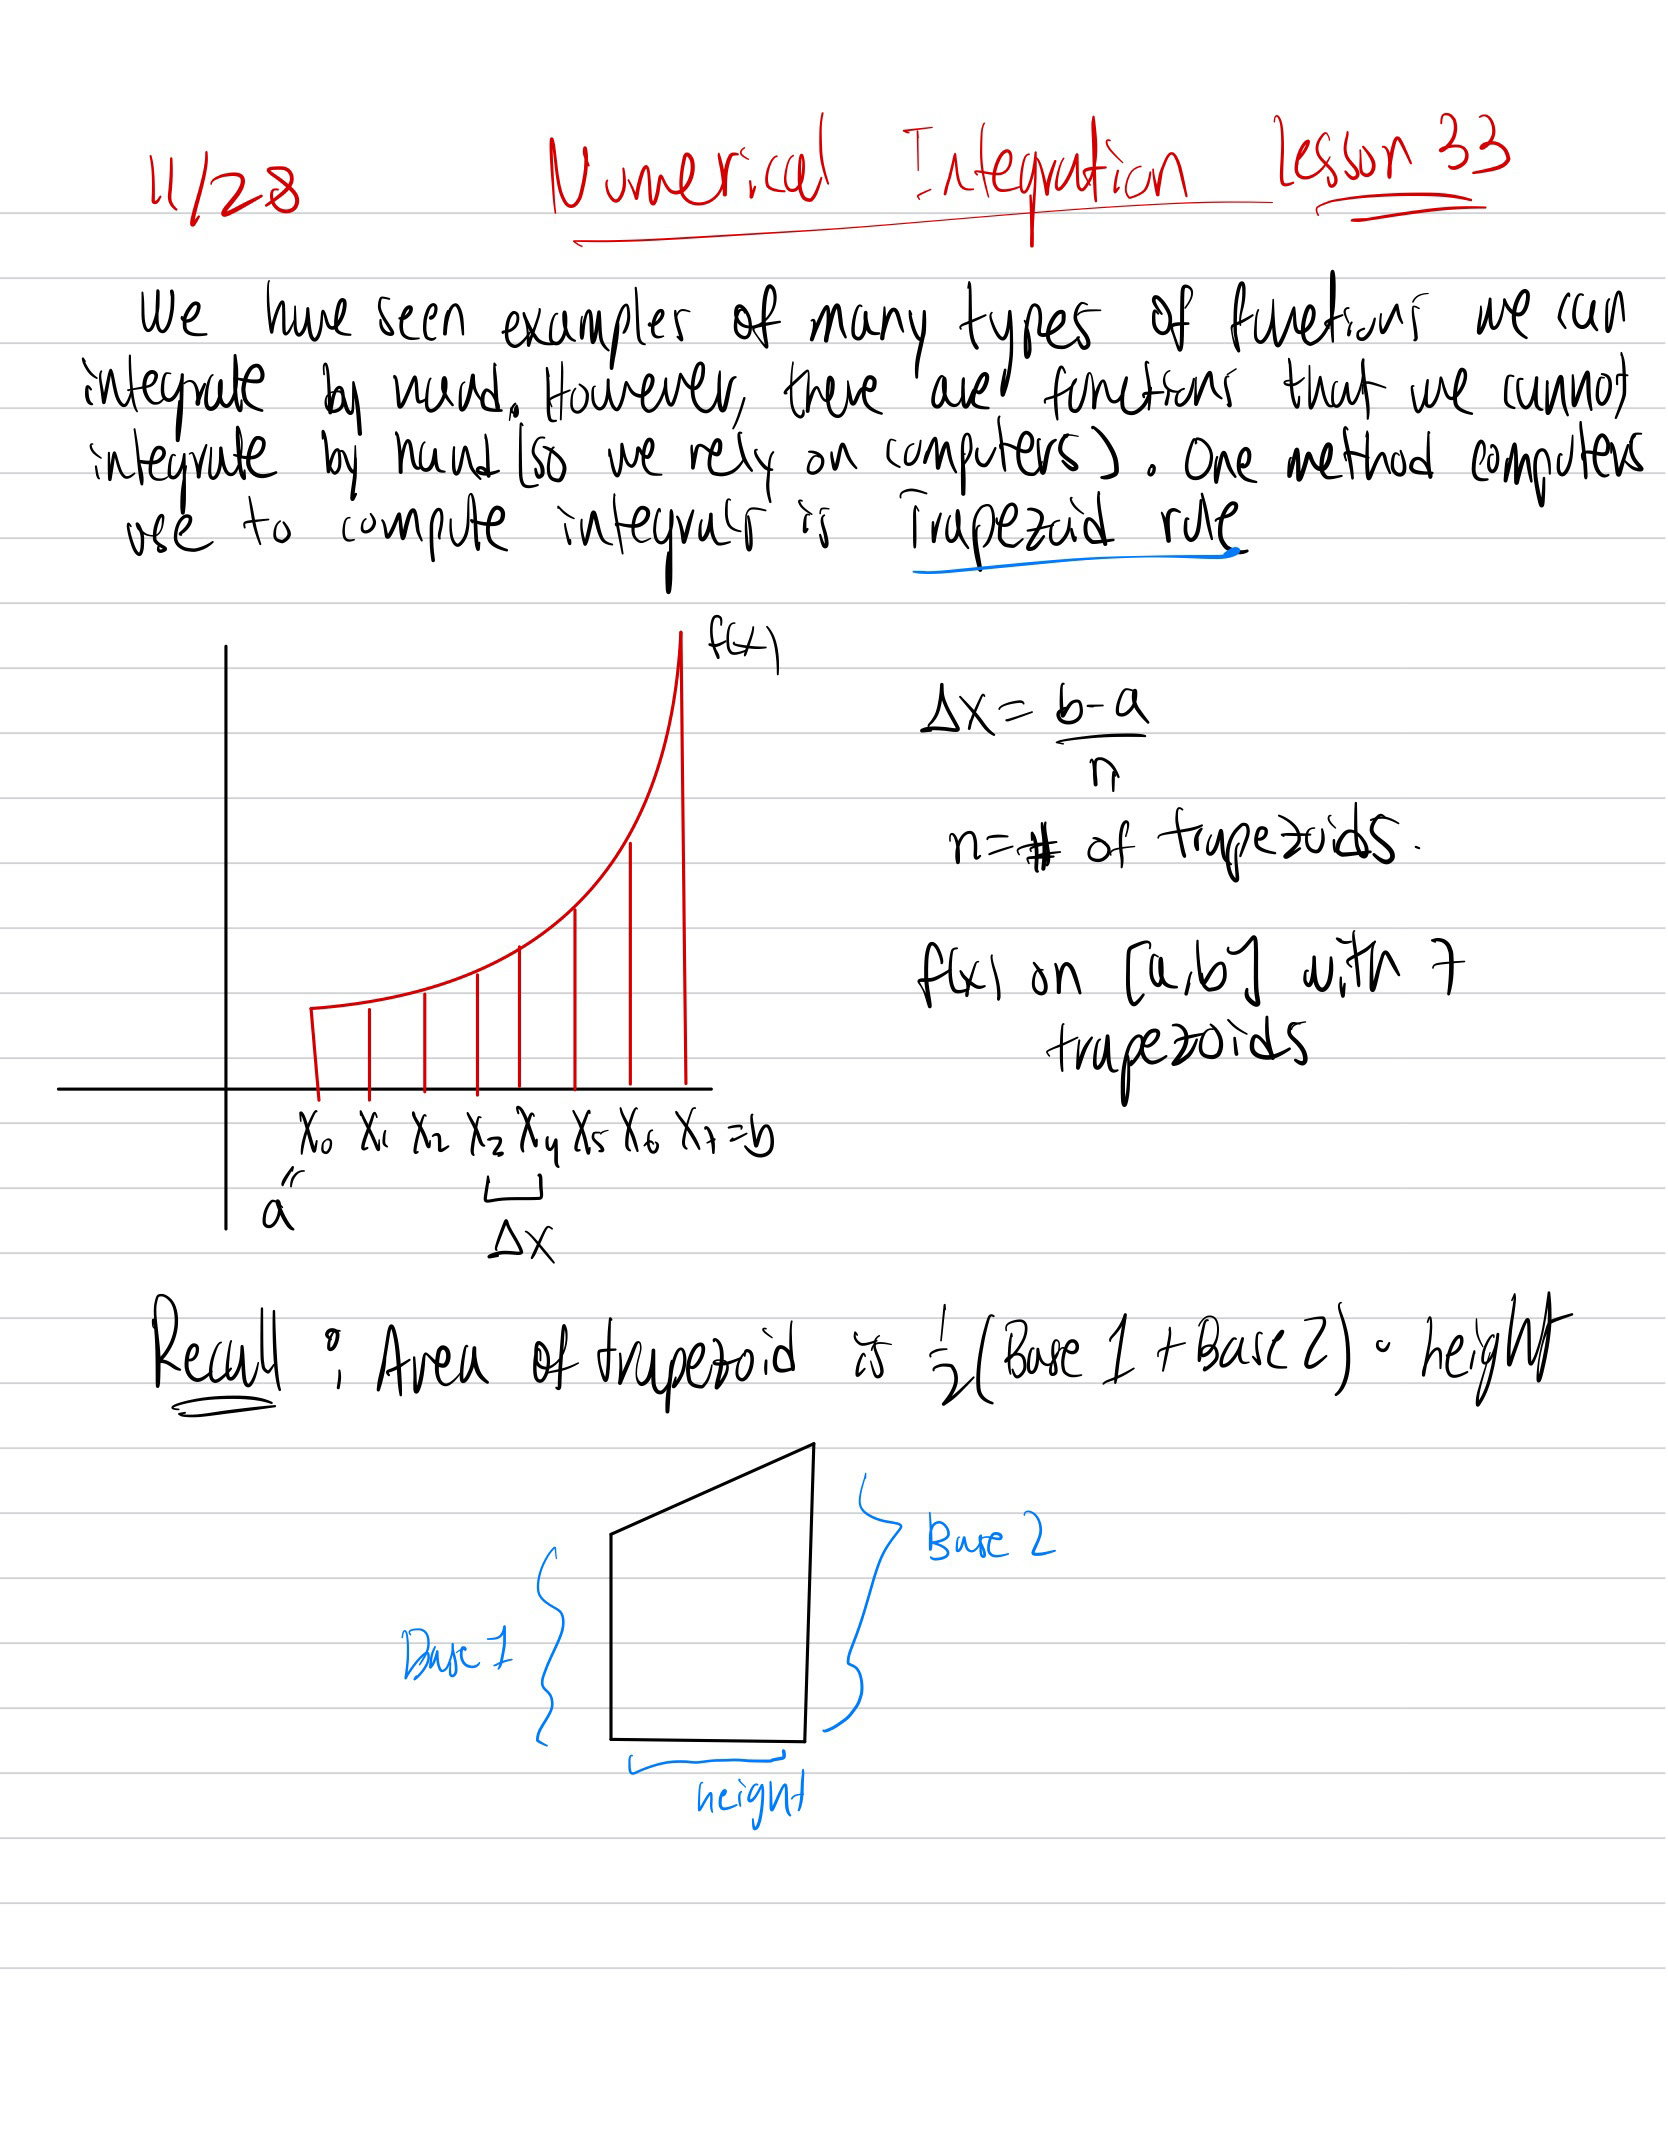 11/28 Numerical Integration Lesson 33
We have seen examples of many types of functions we can
integrate by hand. However, there are functions that we cannot
integrate by hand (so we rely on computers). One method computers
use to compute integrals is Trapezoid rule
f(x)
Δx = b-a
n
n = # of trapezoids.
f(x) on [a,b] with 7
trapezoids
x₀ x₁ x₂ x₃ x₄ x₅ x₆ x₇ = b
a"
Δx
Recall : Area of trapezoid is 1/2 (Base 1 + Base 2) · height
Base 2
Base 1
height